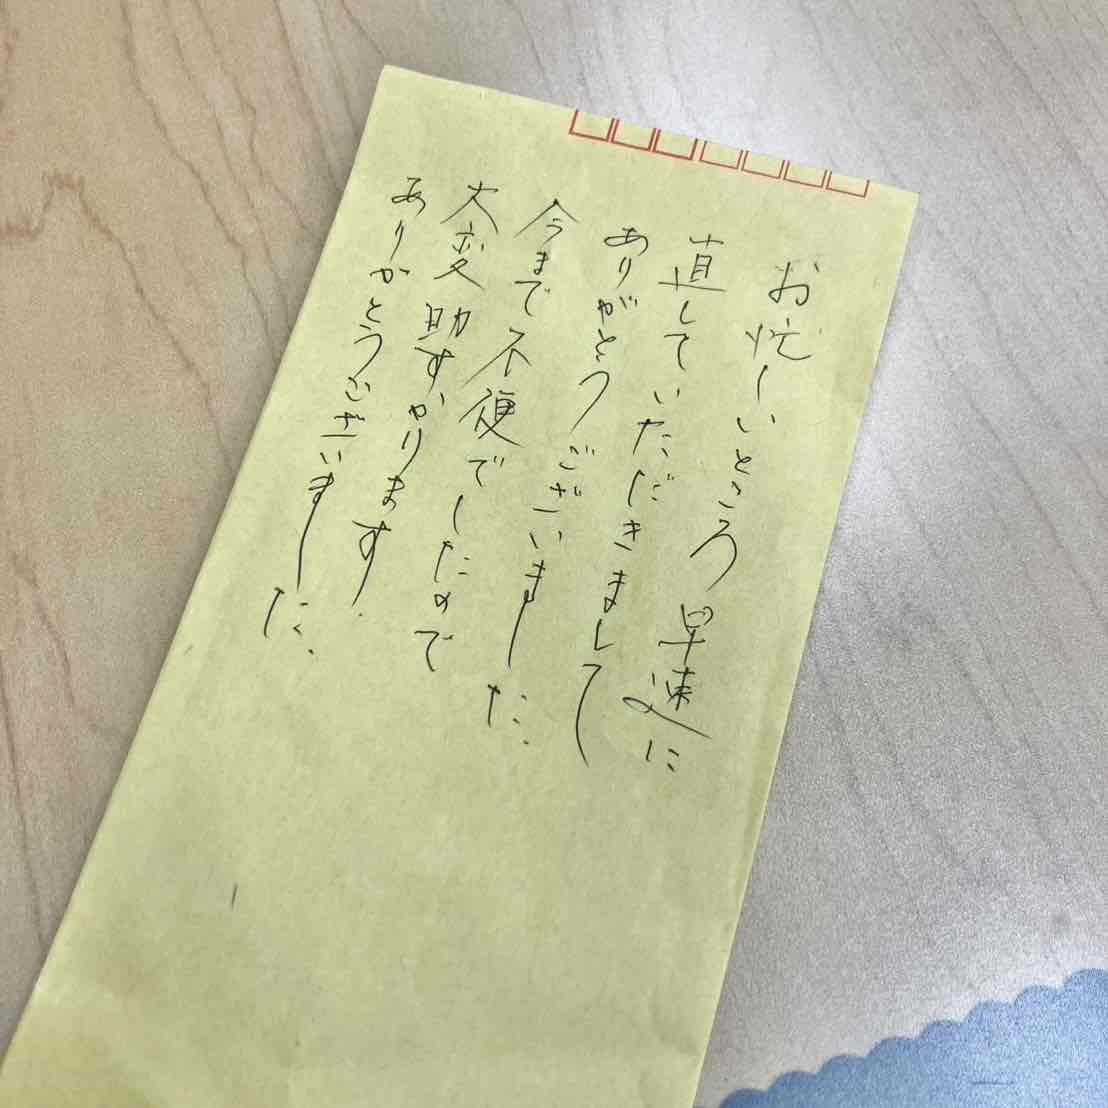 お忙しいところ早速に
直していただきまして
ありがとうございました.
今まで不便でしたので
大変助すかります.
ありがとうございました.